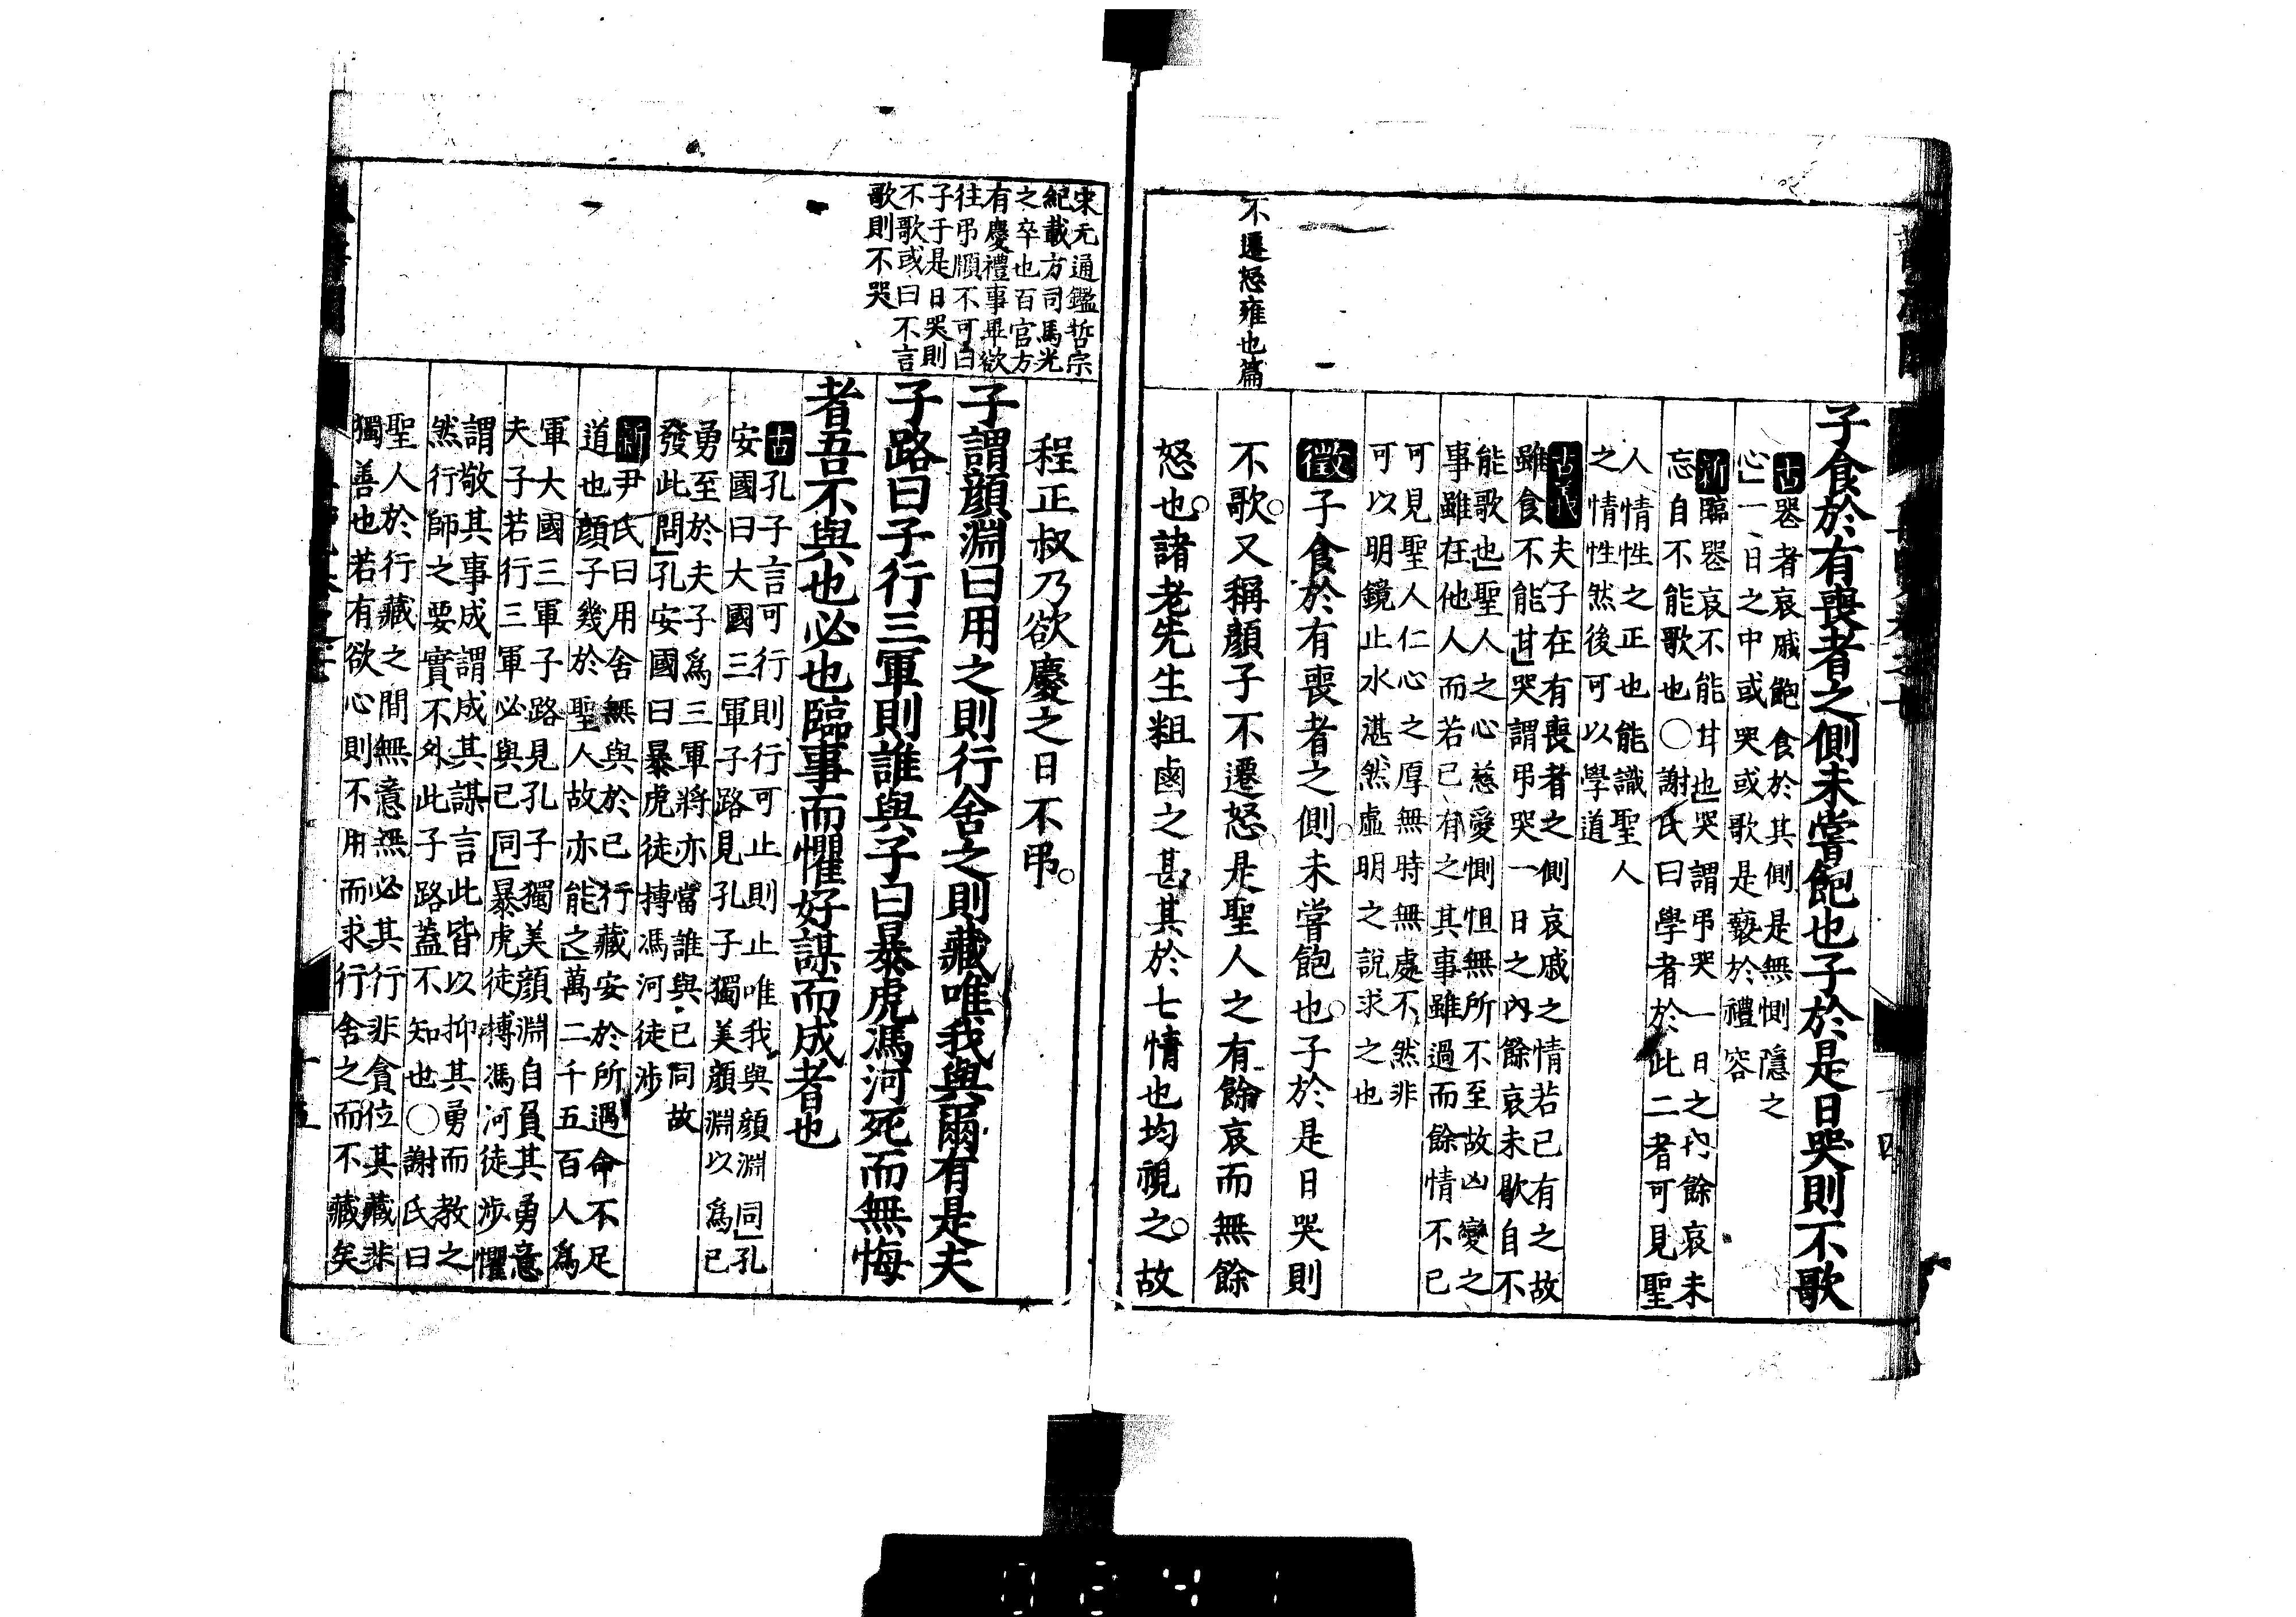 不遷怒雍也篇
子食於有喪者之側未嘗飽也子於是日哭則不歌
古喪者哀戚飽食於其側是無惻隱之
心一日之中或哭或歌是褻於禮容
新臨喪哀不能甘也哭謂弔哭一日之內餘哀未
忘自不能歌也〇謝氏曰學者於此二者可見聖
人情性之正也能識聖人
之情性然後可以學道
古義夫子在有喪者之側哀戚之情若己有之故
雖食不能甘哭謂弔哭一日之內餘哀未歇自不
能歌也聖人之心慈愛惻怛無所不至故凶變之
事雖在他人而若己有之其事雖過而餘情不已
可見聖人仁心之厚無時無處不然非
可以明鏡止水湛然虛明之說求之也
徵子食於有喪者之側未嘗飽也子於是日哭則
不歌又稱顏子不遷怒是聖人之有餘哀而無餘
怒也諸老先生粗鹵之甚其於七情也均視之故
宋元通鑑哲宗
紀載方司馬光
之卒也百官方
有慶禮事畢欲
往弔頤不可曰
子于是日哭則
不歌或曰不言
歌則不哭
程正叔乃欲慶之日不弔
子謂顏淵曰用之則行舍之則藏唯我與爾有是夫
子路曰子行三軍則誰與子曰暴虎馮河死而無悔
者吾不與也必也臨事而懼好謀而成者也
古孔子言可行則行可止則止唯我與顏淵同孔
安國曰大國三軍子路見孔子獨美顏淵以為己
勇至於夫子為三軍將亦當誰與己同故
發此問孔安國曰暴虎徒搏馮河徒涉
新尹氏曰用舍無與於己行藏安於所遇命不足
道也顏子幾於聖人故亦能之萬二千五百人為
軍大國三軍子路見孔子獨美顏淵自負其勇意
夫子若行三軍必與己同暴虎徒搏馮河徒涉懼
謂敬其事成謂成其謀言此皆以抑其勇而教之
然行師之要實不外此子路蓋不知也〇謝氏曰
聖人於行藏之間無意無必其行非貪位其藏非
獨善也若有欲心則不用而求行舍之而不藏矣